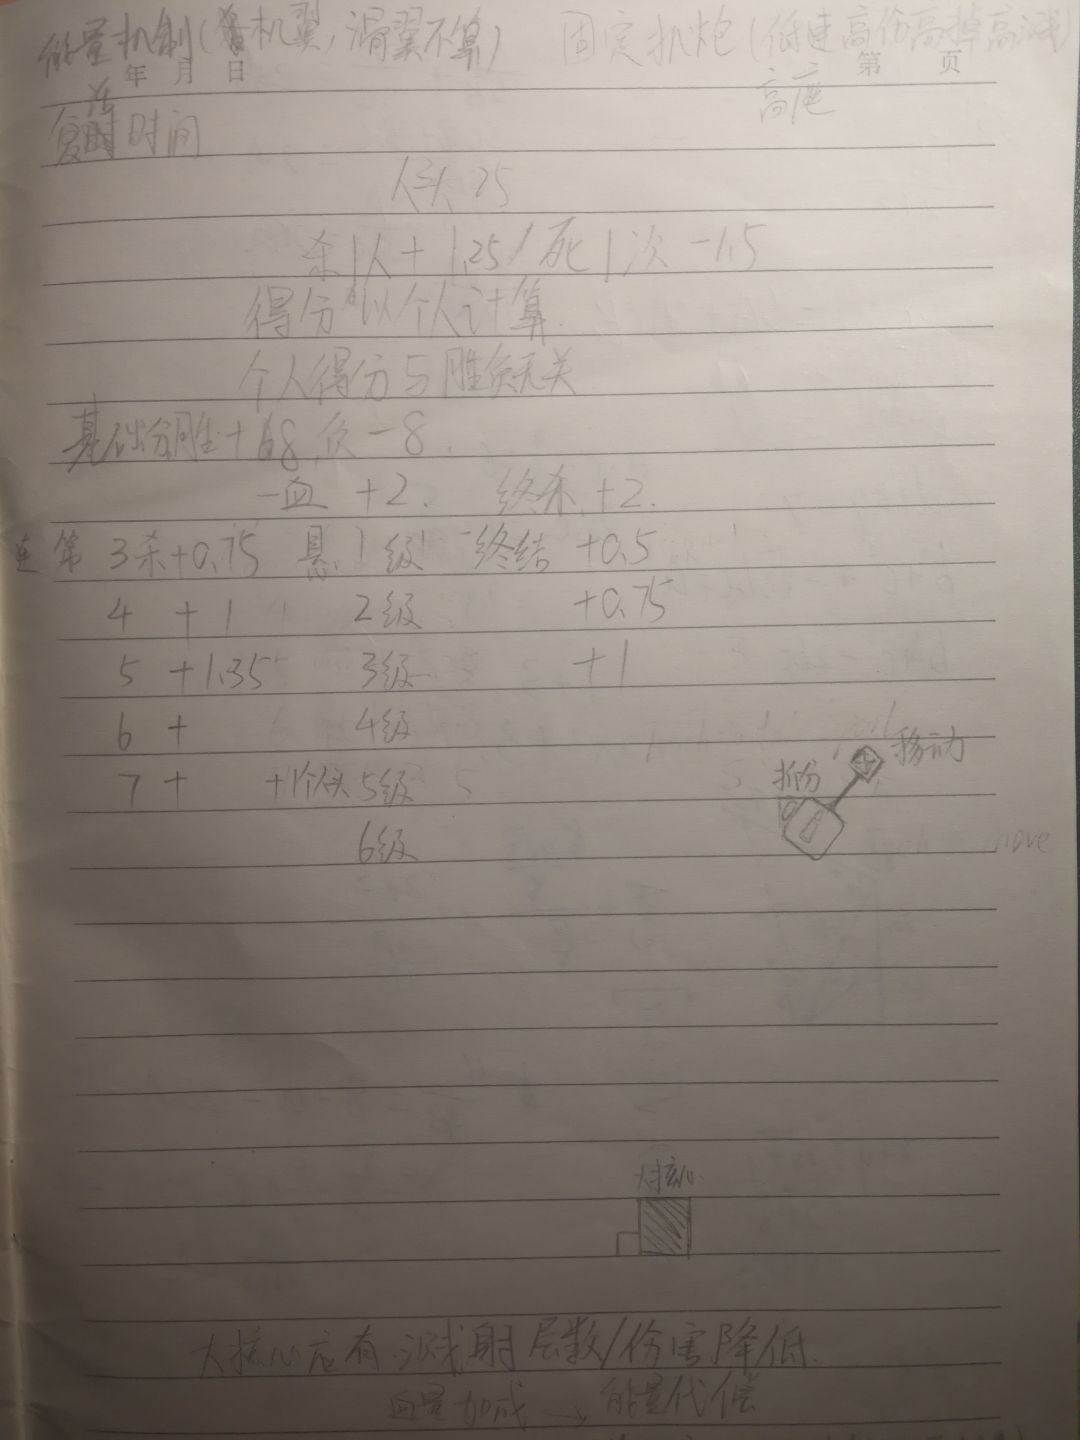 能量机制(机翼,滑翼不算) 固定机炮(低速高伤高掉高溅)
年 月 日 第 页
高座
复活时间
人头 25
杀1人+1.25/死1次-1.5
得分以个人计算.
个人得分与胜负无关
基础分胜+68,负-8.
一血 +2. 终杀 +2.
连第 3杀+0.75 悬1级 终结 +0.5
4 +1 2级 +0.75
5 +1.35 3级 +1
6 + 4级
7 + +1个人头 5级
移动
6级
大核心
大核心应有溅射层数/伤害降低.
血量加成→能量代偿